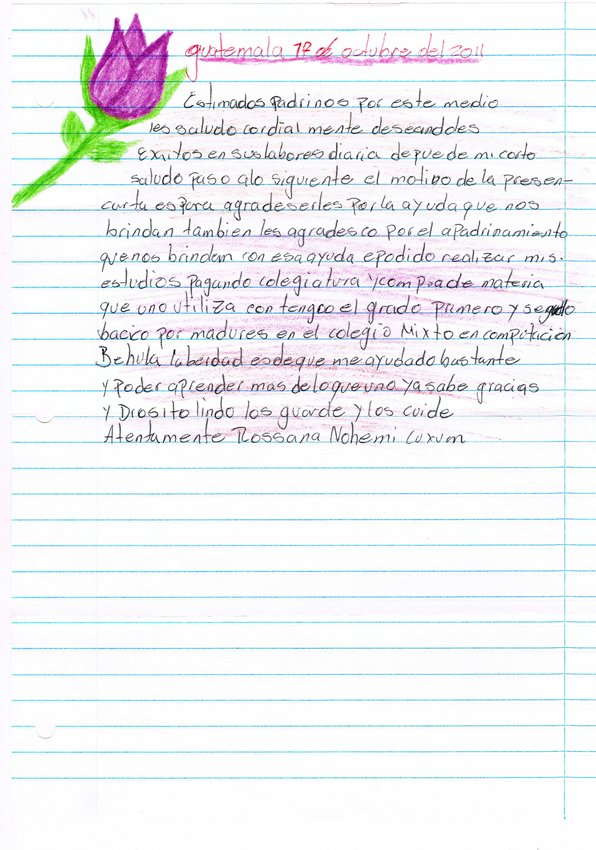 guatemala 17 de octubre del 2011
Estimados Padrinos por este medio
les saludo cordial mente deseandoles
Exitos en sus labores diaria depue de mi corto
saludo paso alo siguiente el motivo de la presen-
carta es para agradeserles por la ayuda que nos
brindan tambien les agradesco por el apadrinamiento
que nos brindan con esa ayuda e podido realizar mis.
estudios pagando colegiatura y compra de materia
que uno utiliza con tengoo el grado primero y segudo
bacico por madures en el colegio Mixto en computición
Behula la berdad es de que me ayudado bastante
y poder aprender mas de lo que uno ya sabe gracias
y Diosito lindo los guarde y los cuide
Atentamente Rossana Nohemi Cuxum